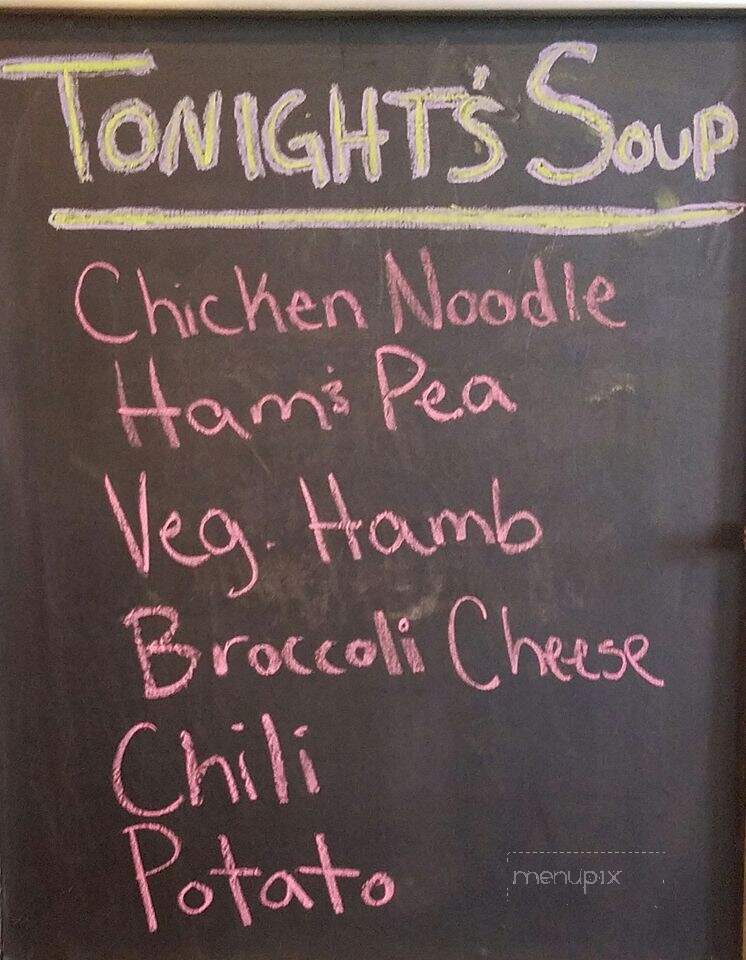 TONIGHT'S SOUP
Chicken Noodle
Ham & Pea
Veg. Hamb
Broccoli Cheese
Chili
Potato
menupix